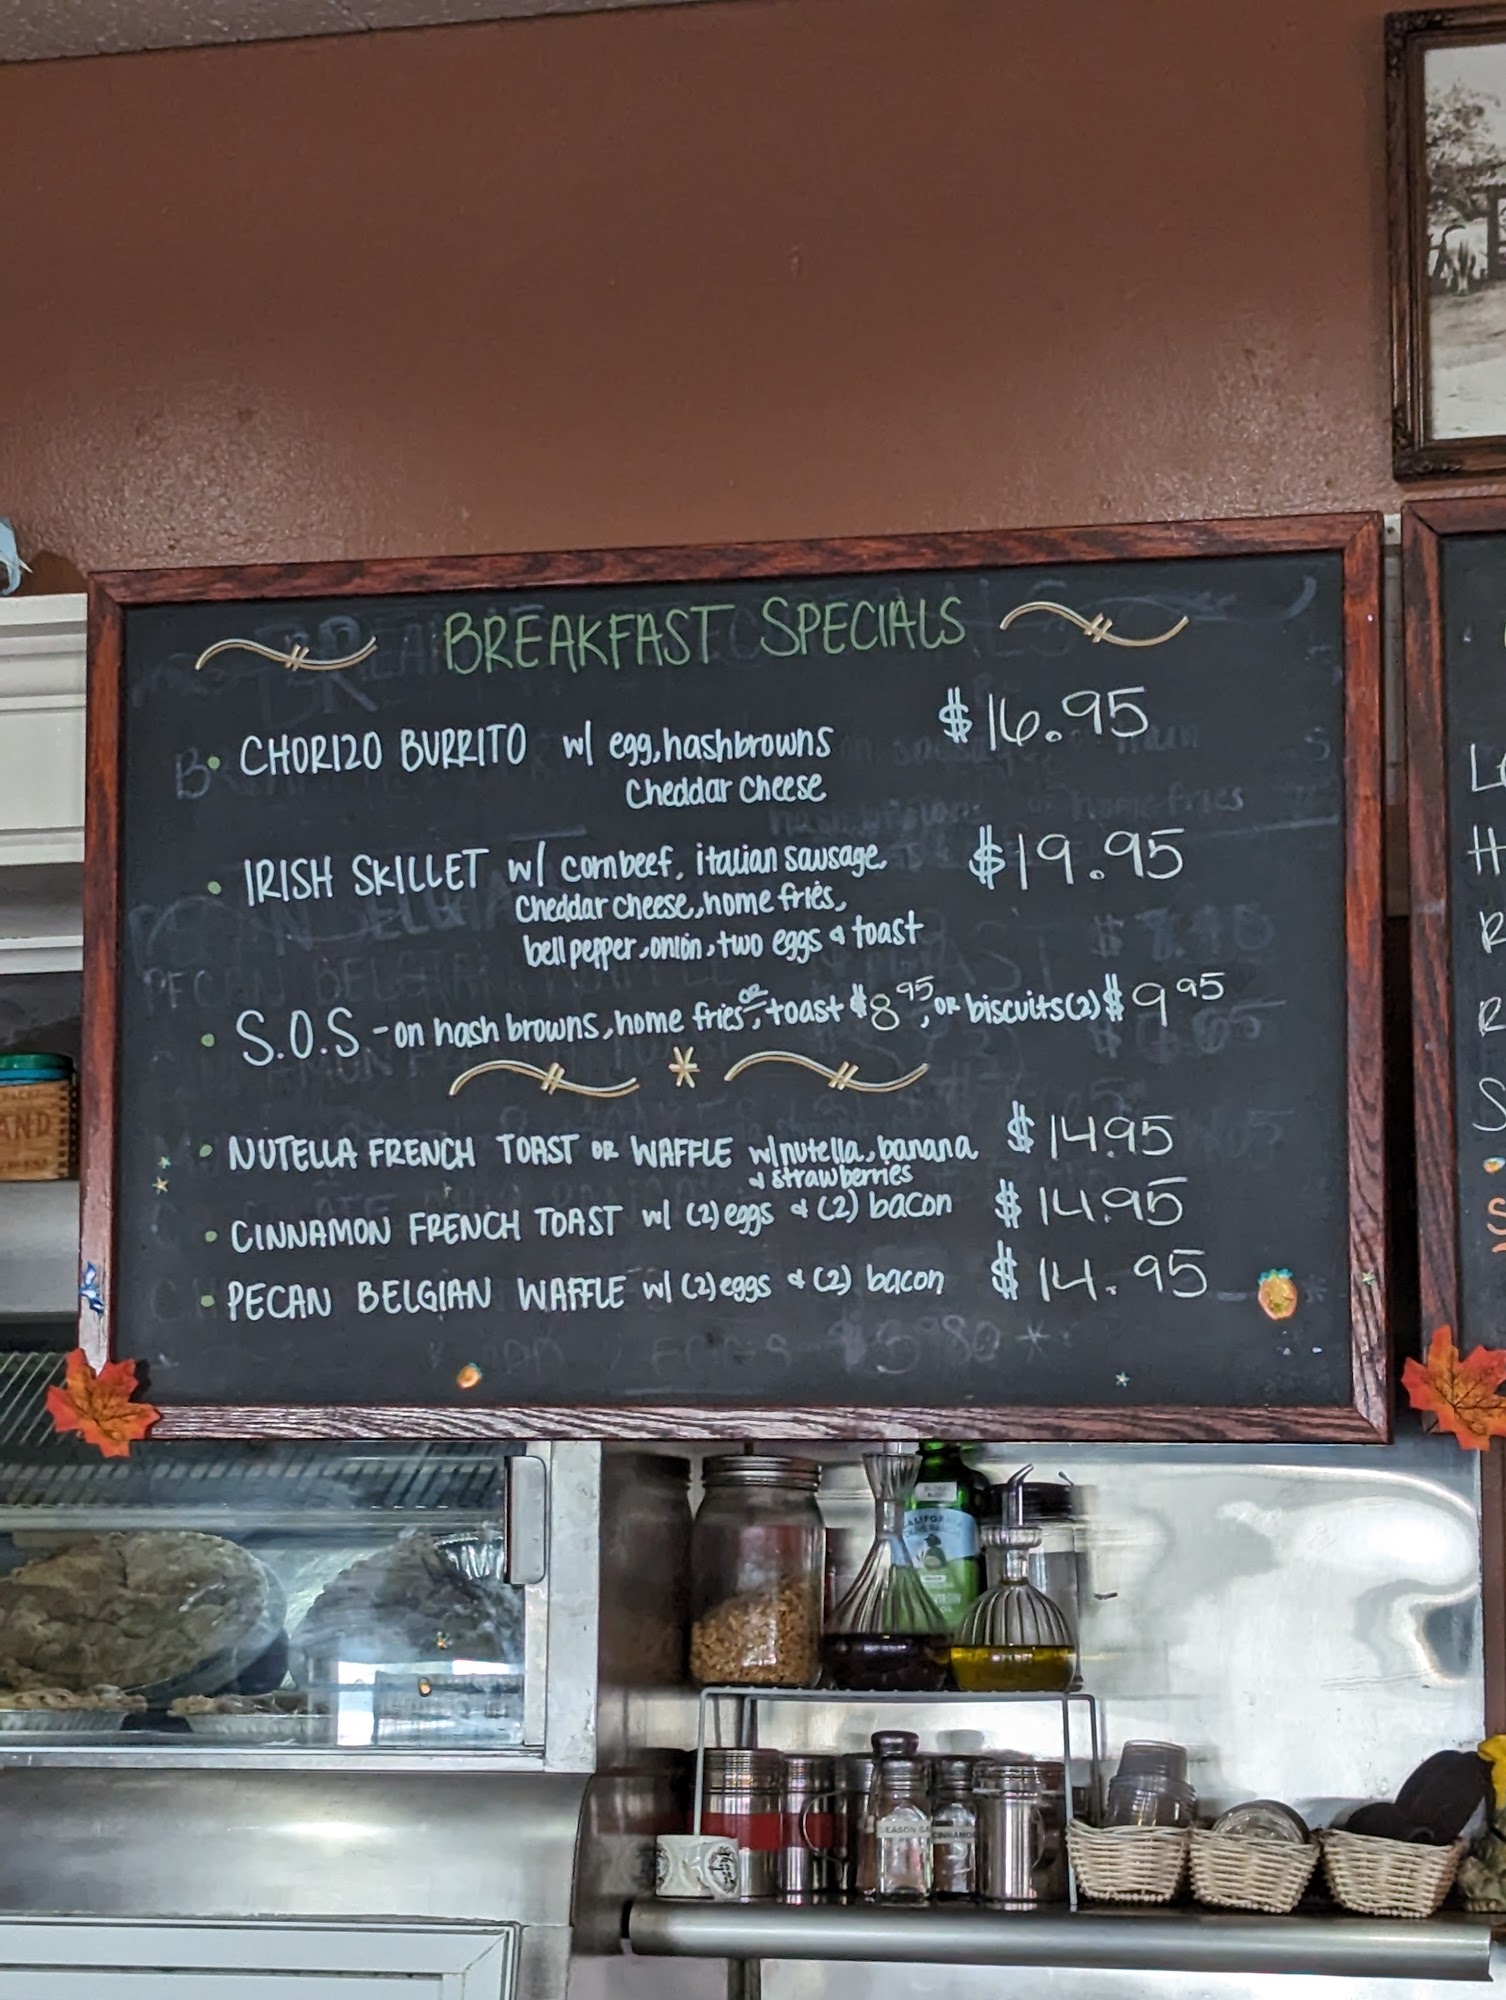 BREAKFAST SPECIALS
• CHORIZO BURRITO w/ egg, hashbrowns $16.95
Cheddar cheese
• IRISH SKILLET w/ cornbeef, italian sausage, $19.95
Cheddar cheese, home fries,
bell pepper, onion, two eggs & toast
• S.O.S - on hash browns, home fries, OR toast $8.95, OR biscuits (2) $9.95
• NUTELLA FRENCH TOAST OR WAFFLE w/ nutella, banana $14.95
& strawberries
• CINNAMON FRENCH TOAST w/ (2) eggs & (2) bacon $14.95
• PECAN BELGIAN WAFFLE w/ (2) eggs & (2) bacon $14.95
AND
CINNAMON